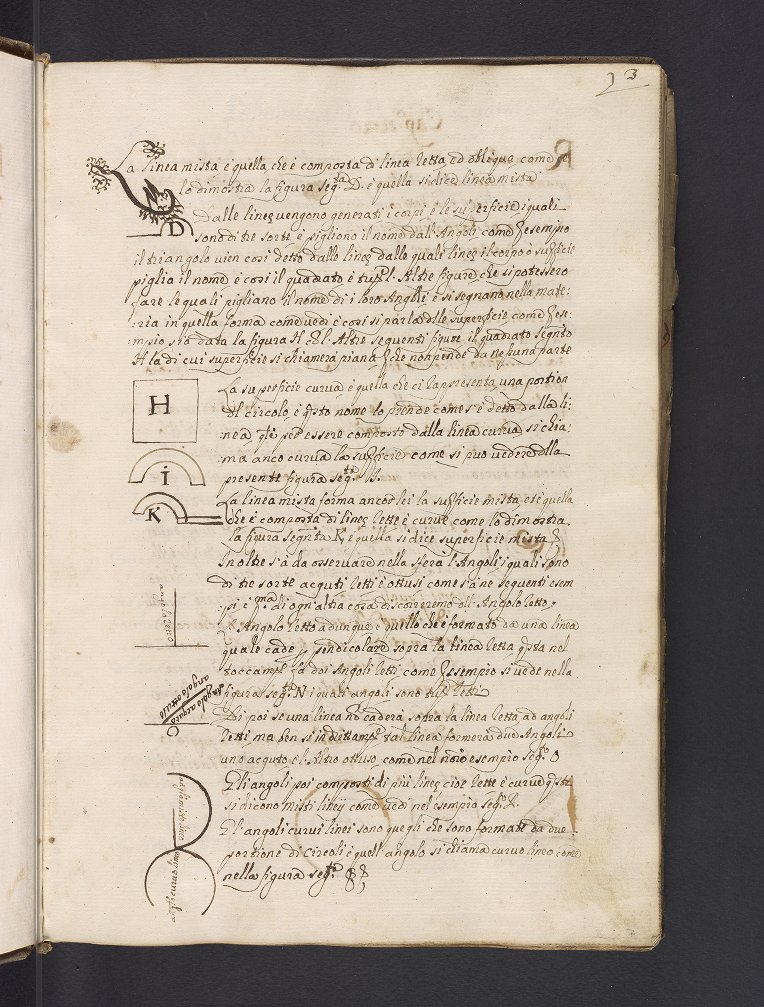 3
La linea mista è quella che è composta di linea retta ed obliqua come
lo dimostra la figura seg.ta D. è quella si dice linea mista
D
Dalle linee vengono generati i corpi è le superficie i quali
sono di tre sorte è pigliono il nome dall'Angoli come
il triangolo vien così detto dalle linee dalle quali linee il corpo o
piglia il nome è così il quadrato è Altre figure che si potessero
fare le quali pigliano il nome di i loro Angoli è si segnano nella mate:
:ria in quella forma come vedi è così si parla superficie come
:mpio stà data la figura H Altre seguenti figure il quadrato segn.to
H la di cui superficie si chiamera piana che non pende da nessuna parte
H
La superficie curva è quella che ci rappresenta una portion
del circolo, è nome lo prende come s'è detto dalla li:
nea per essere composto dalla linea curva si chia:
:ma anco curva la come si puo vedere alla
presente figura seg.ta
I
La linea mista forma ancor lei la mista, et è quella
che è composta di linee rette è curve come lo dimostra
K
la figura segn.ta K, è quella si dice superficie mista
Inoltre s'à da osservare nella sfera l'Angoli i quali sono
di tre sorte acquti retti è ottusi come s'à ne seguenti esem
:pi è p.ma di ogn'altra cosa discorreremo Angolo retto,
angolo retto
L'Angolo retto adunque è quello che è formato da una linea
quale cade sopra la linea retta nel
doi Angoli retti come si vede nella
figura seg.ta N i quali angoli sono retti
angolo ottuso
angolo acquto
Di poi se una linea nõ caderà sopra la linea retta, ad angoli
O
retti ma ben si tal linea formera due Angoli
uno acquto è l'Altro ottuso, come nel esempio seg.to O
Gli angoli poi composti di più linee cioe rette è curve
si dicono misti linei come vedi nel esempio seg.to
Gl'angoli curvi linei sono quegli che sono formati da due
portione di circoli è quell'angolo si chiama curvo lineo come
nella figura seg.te